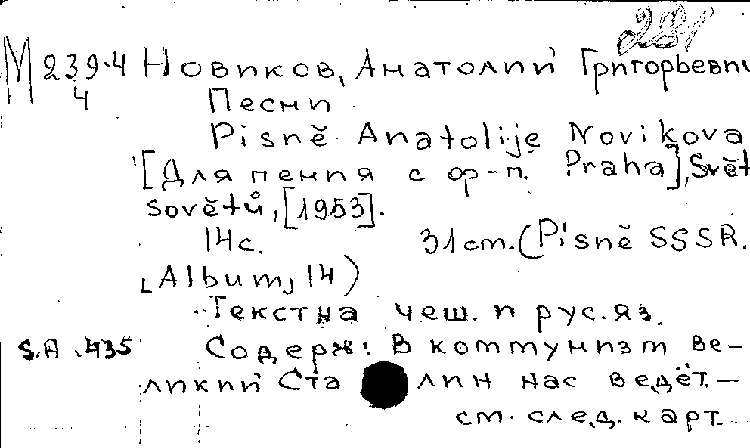 231
М 239.4 Новиков, Анатолий Григорьевич
4 Песни
Pisně Anatolije Novikova
[Для пения с ф-п. Praha], Svět
sovětů, [1953].
14с. 31cm. (Pisně SSSR.
Album, 14)
Текст на чеш. и рус. яз.
S.A. 435 Содерж: В коммунизм ве-
ликий Сталин нас ведёт. —
см. след. карт.